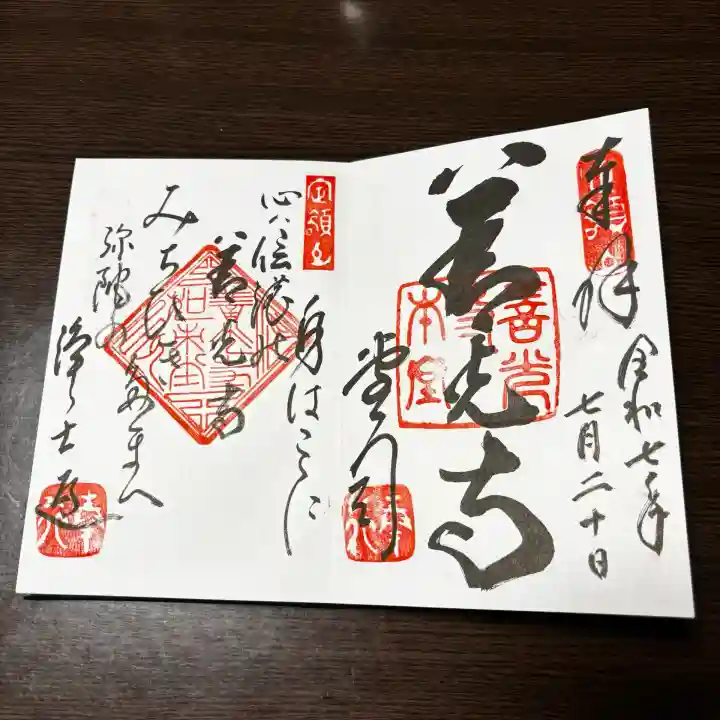 奉拝
令和七年
七月二十日
善光寺
善光寺本堂
定額山
身はここに
心ハ信濃の
善光寺
みちびき
たまへ
弥陀の
浄土